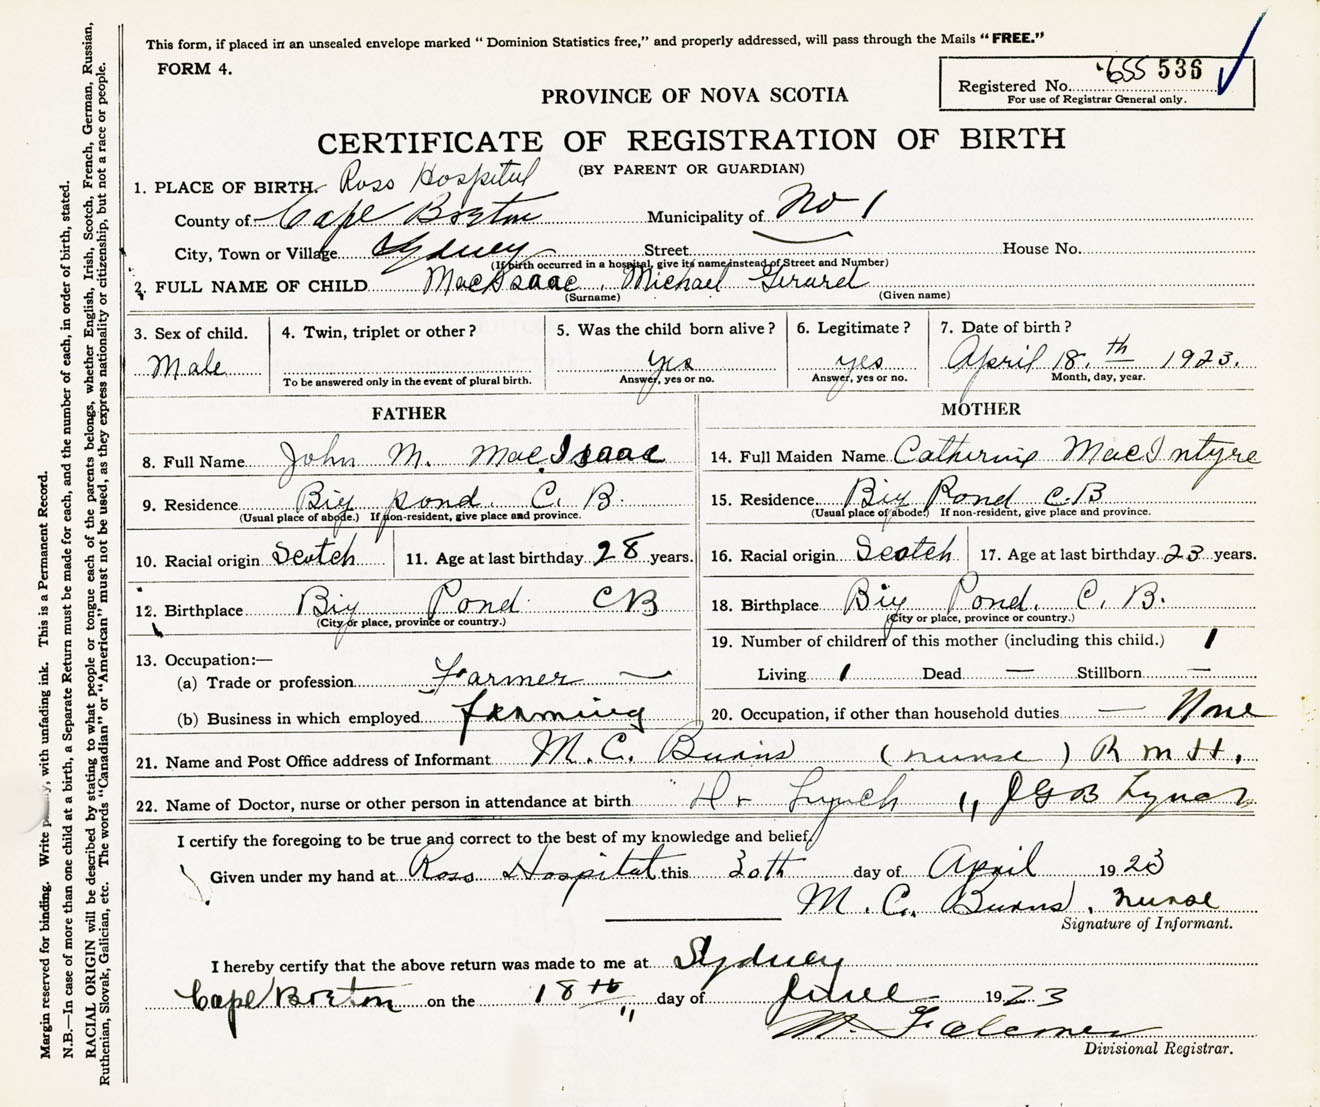 This form, if placed in an unsealed envelope marked "Dominion Statistics free," and properly addressed, will pass through the Mails "FREE."
FORM 4.
Registered No. 655 536
For use of Registrar General only.
PROVINCE OF NOVA SCOTIA
CERTIFICATE OF REGISTRATION OF BIRTH
(BY PARENT OR GUARDIAN)
1. PLACE OF BIRTH. Ross Hospital
County of Cape Breton Municipality of No 1
City, Town or Village Sydney Street House No.
(If birth occurred in a hospital, give its name instead of Street and Number)
2. FULL NAME OF CHILD MacIsaac, Michael Gerard
(Surname) (Given name)
3. Sex of child. 4. Twin, triplet or other? 5. Was the child born alive? 6. Legitimate? 7. Date of birth?
Male yes yes April 18th 1923.
To be answered only in the event of plural birth. Answer, yes or no. Answer, yes or no. Month, day, year.
FATHER MOTHER
8. Full Name John M. MacIsaac 14. Full Maiden Name Catherine MacIntyre
9. Residence Big pond. C. B. 15. Residence Big Pond C.B
(Usual place of abode.) If non-resident, give place and province. (Usual place of abode.) If non-resident, give place and province.
10. Racial origin Scotch 11. Age at last birthday 28 years. 16. Racial origin Scotch 17. Age at last birthday 23 years.
12. Birthplace Big Pond CB 18. Birthplace Big Pond. C. B.
(City or place, province or country.) (City or place, province or country.)
13. Occupation:— 19. Number of children of this mother (including this child.) 1
(a) Trade or profession Farmer — Living 1 Dead — Stillborn —
(b) Business in which employed farming 20. Occupation, if other than household duties — None
21. Name and Post Office address of Informant M. C. Burns (nurse) R M H.
22. Name of Doctor, nurse or other person in attendance at birth Dr Lynch " JGB Lynch
I certify the foregoing to be true and correct to the best of my knowledge and belief,
Given under my hand at Ross Hospital this 30th day of April 1923
M. C. Burns, nurse
Signature of Informant.
I hereby certify that the above return was made to me at Sydney
Cape Breton on the 18th day of June 1923
Divisional Registrar.
Margin reserved for binding. Write with unfading ink. This is a Permanent Record.
N.B.—In case of more than one child at a birth, a Separate Return must be made for each, and the number of each, in order of birth, stated.
RACIAL ORIGIN will be described by stating to what people or tongue each of the parents belongs, whether English, Irish, Scotch, French, German, Russian,
Ruthenian, Slovak, Galician, etc. The words "Canadian" or "American" must not be used, as they express nationality or citizenship, but not a race or people.